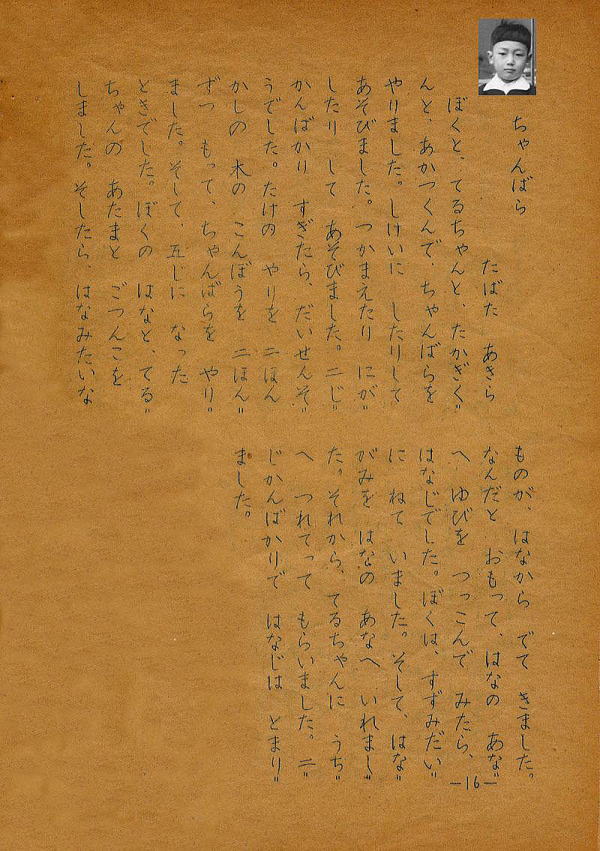 ちゃんばら
たばた　あきら
ぼくと、てるちゃんと、たかぎく〃
んと、あかつくんで、ちゃんばらを
やりました。しけいに　したりして
あそびました。つかまえたり　にが〃
したり　して　あそびました。二じ〃
かんばかり　すぎたら、だいせんそ〃
うでした。たけの　やりを　二ほん
かしの　木の　こんぼうを　二ほん〃
ずつ　もって、ちゃんばらを　やり〃
ました。そして　五じに　なった
ときでした。ぼくの　はなと、てる〃
ちゃんの　あたまと　ごつんこを
しました。そしたら、はなみたいな
ものが、はなから　でて　きました。
なんだと　おもって、はなの　あな〃
へ　ゆびを　つっこんで　みたら、
はなじでした。ぼくは、すずみだい〃
に　ねて　いました。そして、はな〃
がみを　はなの　あなへ　いれまし〃
た。それから、てるちゃんに　うち〃
へ　つれてって　もらいました。二〃
じかんばかりで　はなじは　とまり〃
ました。
—16—